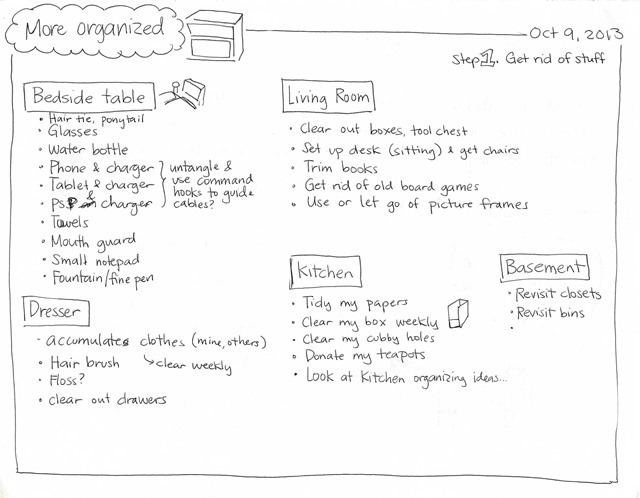 More organized
Oct 9, 2013
Step 1. Get rid of stuff
Bedside table
• Hair tie, ponytail
• Glasses
• Water bottle
• Phone & charger
• Tablet & charger
• PSP & charger
untangle &
use command
hooks to guide
cables?
• Towels
• Mouth guard
• Small notepad
• Fountain/fine pen
Dresser
• accumulates clothes (mine, others)
↳ clear weekly
• Hair brush
• Floss?
• clear out drawers
Living Room
• Clear out boxes, tool chest
• Set up desk (sitting) & get chairs
• Trim books
• Get rid of old board games
• Use or let go of picture frames
Kitchen
• Tidy my papers
• Clear my box weekly
• Clear my cubby holes
• Donate my teapots
• Look at Kitchen organizing ideas...
Basement
• Revisit closets
• Revisit bins
•